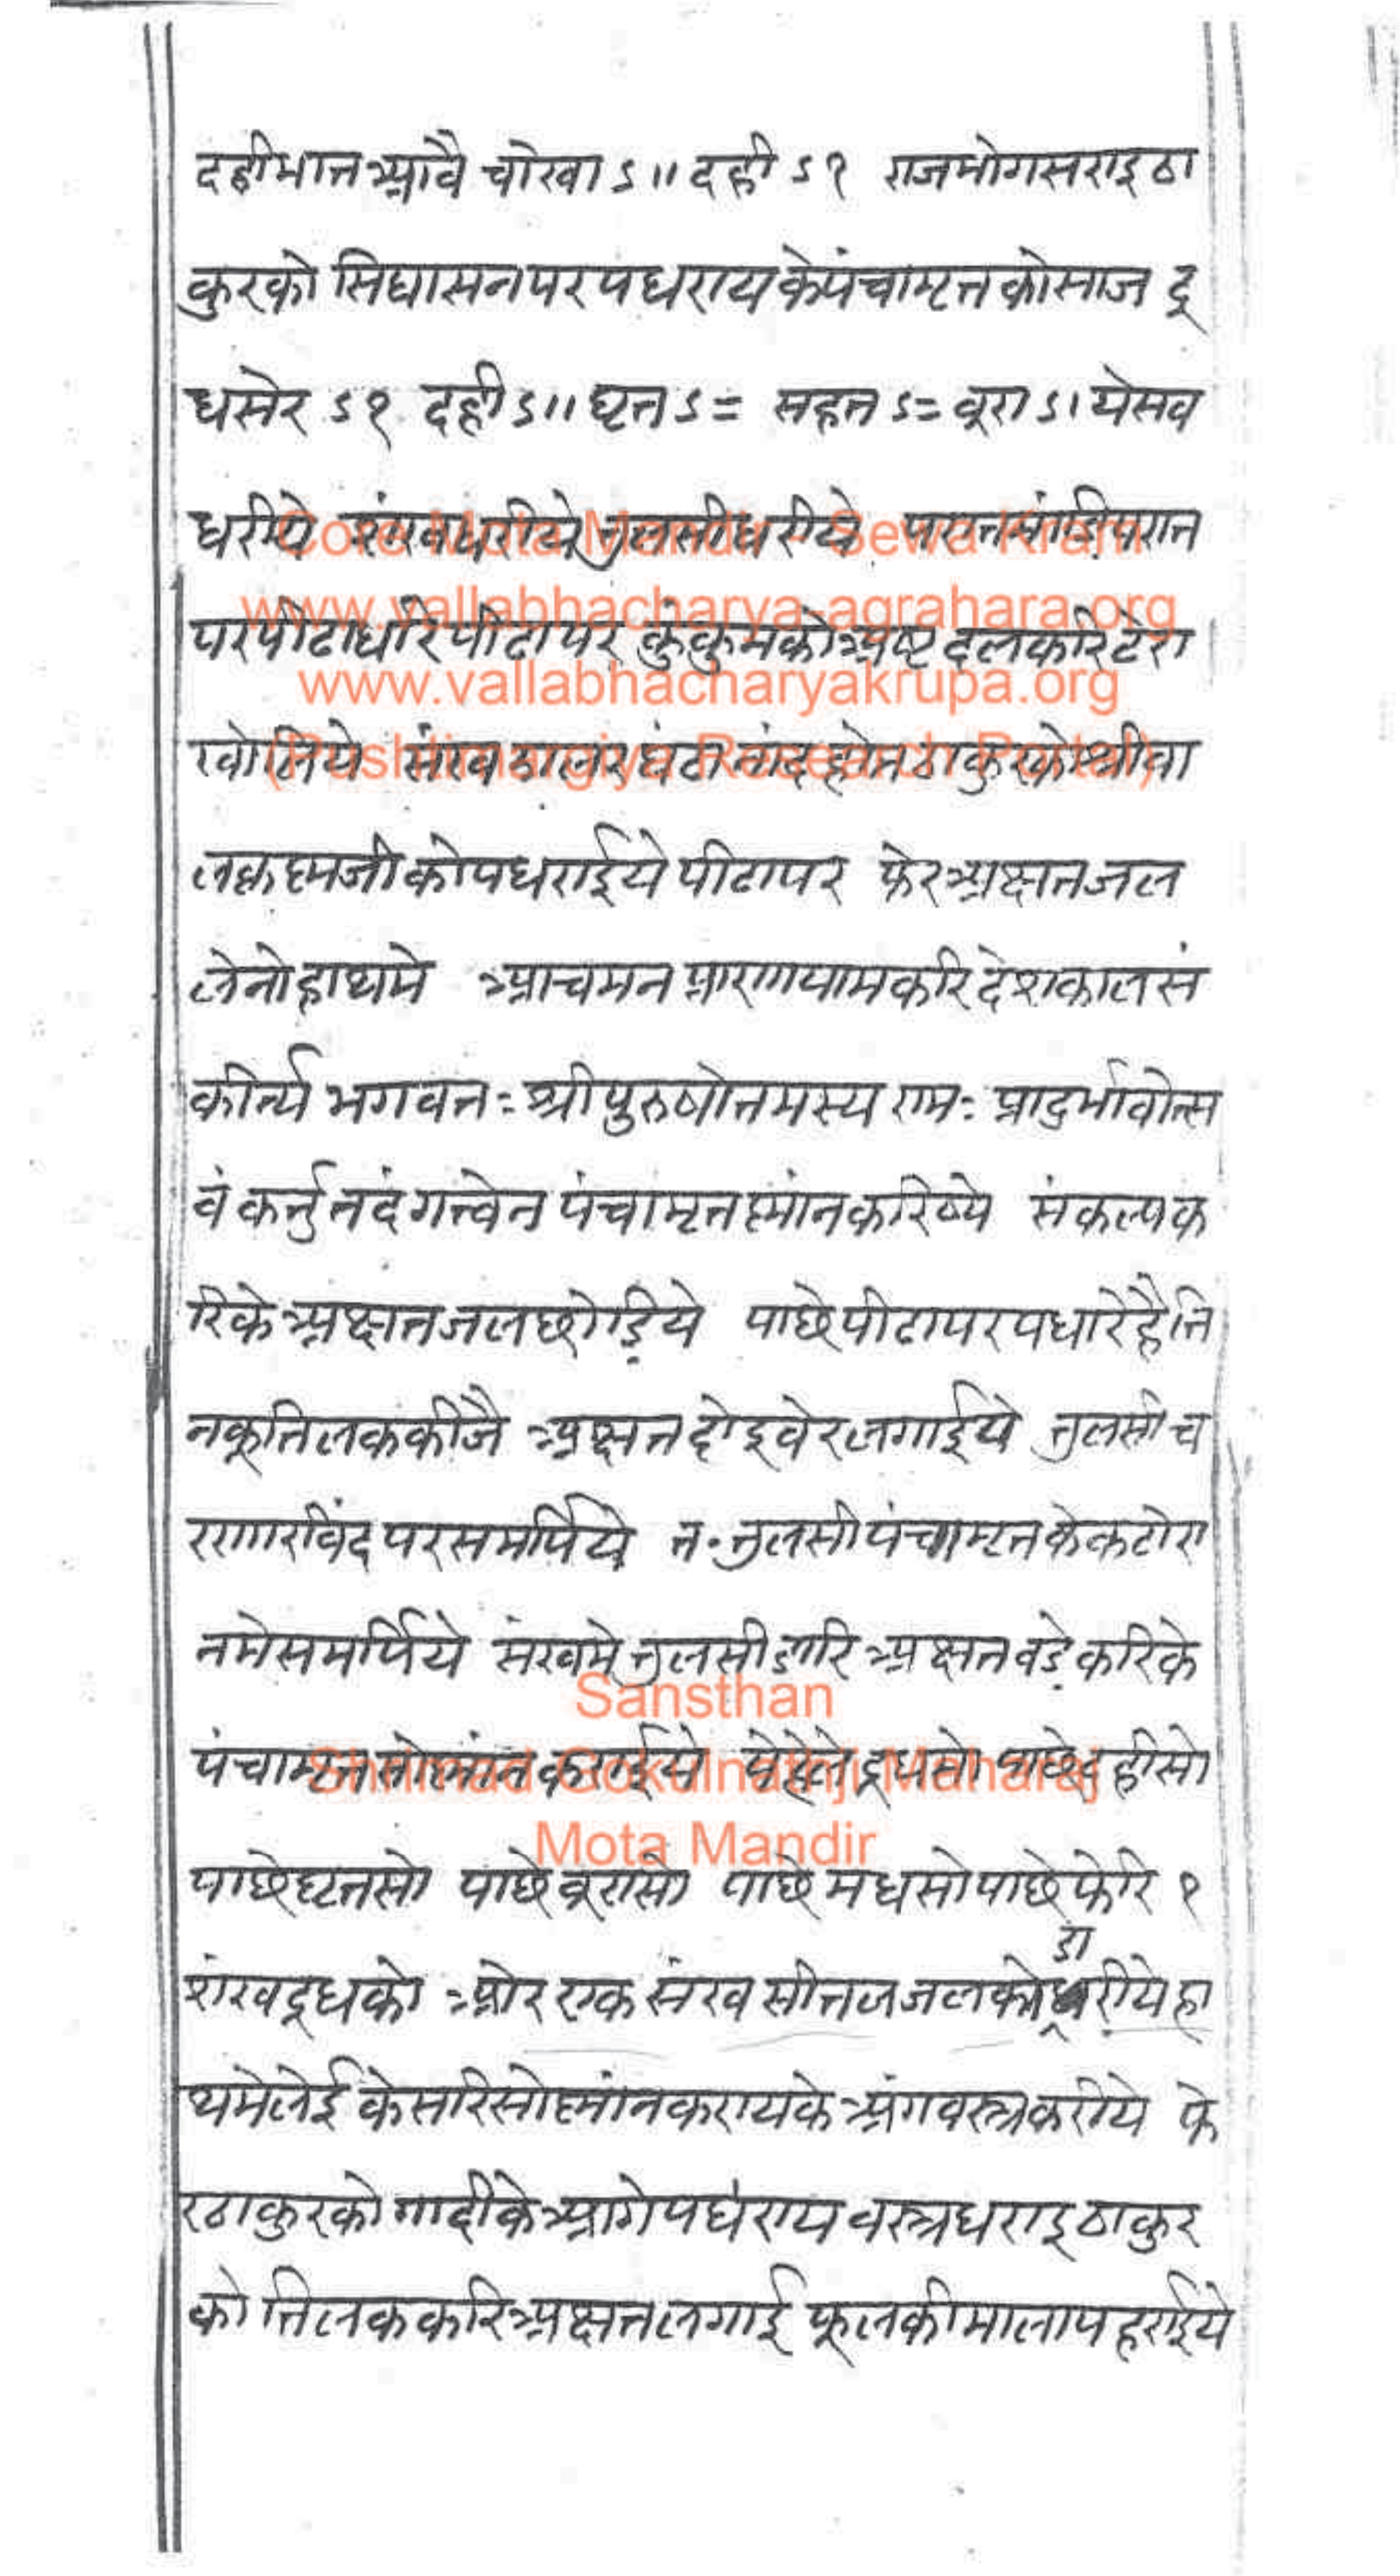 दहीभात आवै चोखा ऽ॥ दही ऽ१ राजभोगसराइ ठा
कुरको सिंघासनपर पधराय के पंचामृत को साज दू
ध सेर ऽ१ दही ऽ॥ घृत ऽ= सहत ऽ= बूरा ऽ। ये सब
धरीये शंख धरीये तुलसी धरीये परात मांडि परात
पर पीढा धरि पीढा पर कुंकुम को अष्टदल करि टेरा
खोलिये संख झालर घंटा नांद होत ठाकुरको श्रीबा
लकृष्णजी को पधराईये पीढापर फेर अक्षत जल
लेनो हाथमे आचमन प्राणायाम करि देशकाल सं
कीर्त्य भगवतः श्रीपुरुषोत्तमस्य रामः प्रादुर्भावोत्स
वं कर्त्तु तदंगत्वेन पंचामृत स्नांन करिष्ये संकल्प क
रिके अक्षत जल छोड़िये पाछे पीढापर पधारेहै ति
नकू तिलक कीजै अक्षत दोइ बेर लगाईये तुलसी च
रणारविंद पर समर्पिये त॰ तुलसी पंचामृत के कटोरा
नमे समर्पिये संखमे तुलसी डारि अक्षत बड़े करिके
पंचामृत सो स्नांन कराईये पेहेले दूधसो पाछे दहीसो
पाछे घृतसो पाछे बूरासो पाछे मधसो पाछे फेरि १
शंख दूधको ओर एक संख सीतल जलको डारीये हा
थमे लेई केसरिसो स्नांन करायके अंगवस्त्र करीये फे
र ठाकुरको गादीके आगे पधराय वस्त्र धराइ ठाकुर
को तिलक करि अक्षत लगाई फूलकी माला पहराईये
Core Mota Mandir - Sewa Kram
www.vallabhacharya-agrahara.org
www.vallabhacharyakrupa.org
(Pushtimargiya Research Portal)
Sansthan
Shrimad Gokulnathji Maharaj
Mota Mandir